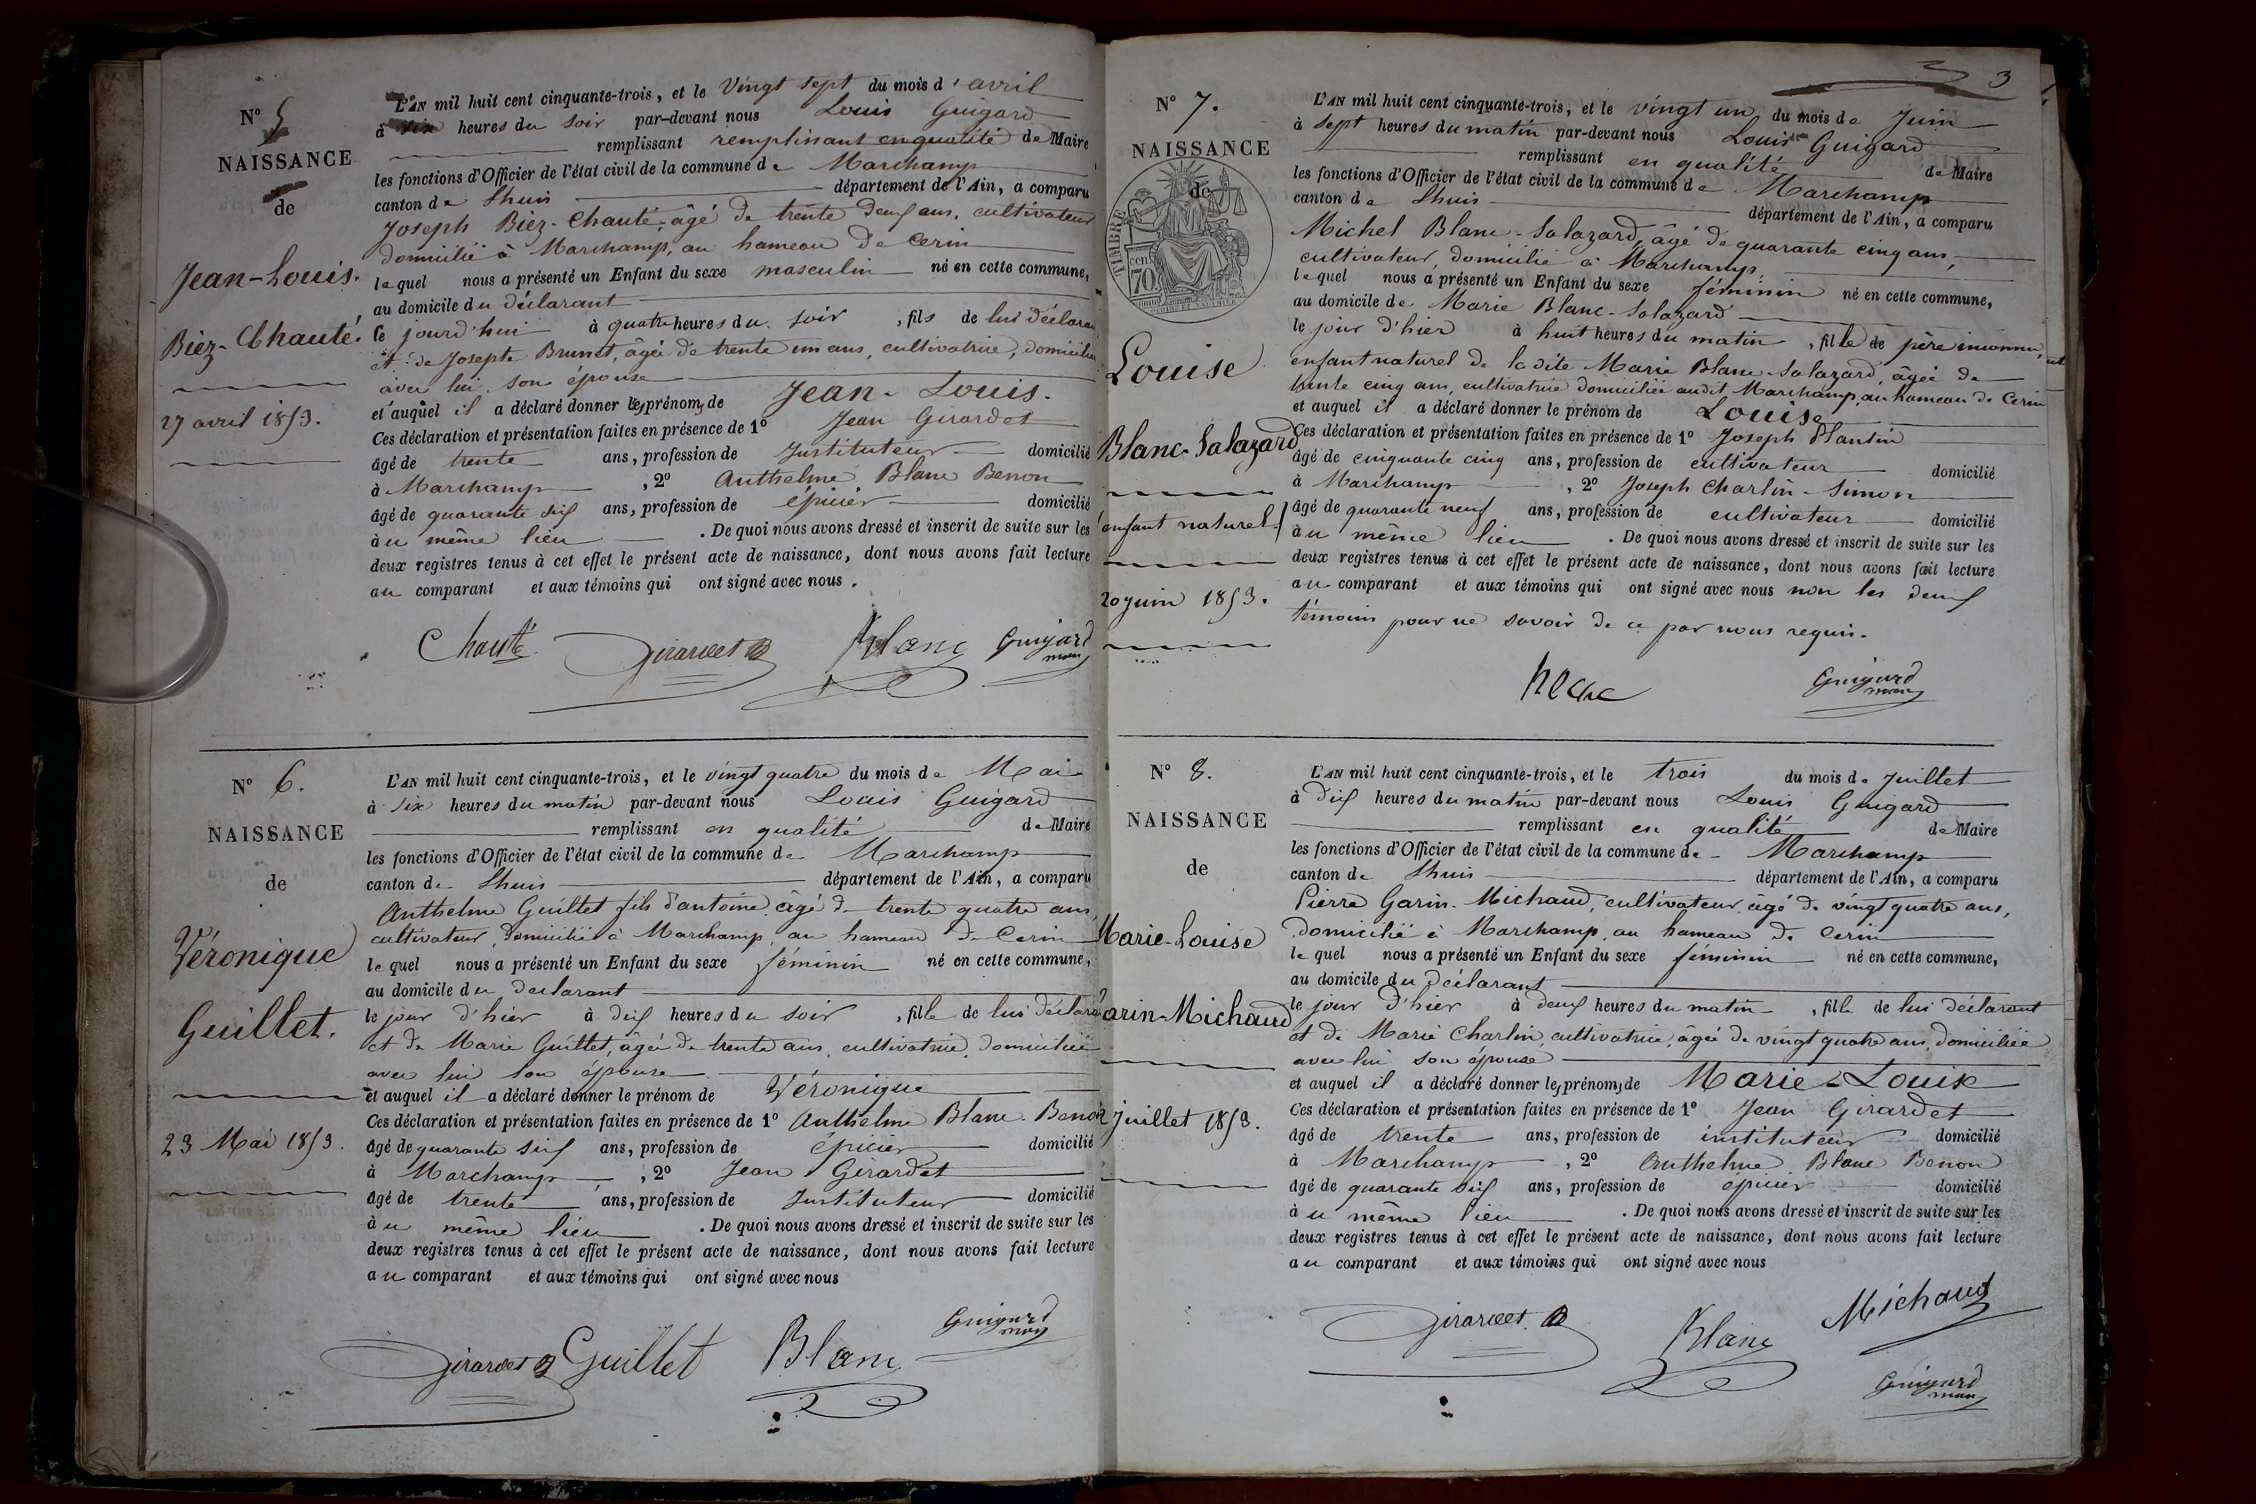 N° 5
NAISSANCE
de
Jean-Louis.
Biez-Chauté.
27 avril 1853.
L'AN mil huit cent cinquante-trois, et le Vingt sept du mois d'avril
à six heures du soir par-devant nous Louis Guigard
remplissant remplissant en qualité de Maire
les fonctions d'Officier de l'état civil de la commune de Marchamp
canton de Lhuis département de l'Ain, a comparu
Joseph Biez-Chauté, âgé de trente deux ans, cultivateur
domicilié à Marchamp, au hameau de Cerin
lequel nous a présenté un Enfant du sexe masculin né en cette commune,
au domicile du déclarant
le jourd'hui à quatre heures du soir, fils de lui déclarant
et de Josephte Brunet, âgée de trente un ans, cultivatrice, domiciliée
avec lui son épouse
et auquel il a déclaré donner les prénoms de Jean-Louis.
Ces déclaration et présentation faites en présence de 1° Jean Girardet
âgé de trente ans, profession de Instituteur domicilié
à Marchamp, 2° Anthelme Blanc Benon
âgé de quarante six ans, profession de épicier domicilié
au même lieu. De quoi nous avons dressé et inscrit de suite sur les
deux registres tenus à cet effet le présent acte de naissance, dont nous avons fait lecture
au comparant et aux témoins qui ont signé avec nous.
Chauté. Girardet Blanc Guigard
maire
N° 6.
NAISSANCE
de
Véronique
Guillet.
23 Mai 1853.
L'AN mil huit cent cinquante-trois, et le vingt quatre du mois de Mai
à six heures du matin par-devant nous Louis Guigard
remplissant en qualité de Maire
les fonctions d'Officier de l'état civil de la commune de Marchamp
canton de Lhuis département de l'Ain, a comparu
Anthelme Guillet fils d'antoine âgé de trente quatre ans,
cultivateur, domicilié à Marchamp, au hameau de Cerin
lequel nous a présenté un Enfant du sexe féminin né en cette commune,
au domicile du déclarant
le jour d'hier à dix heures du soir, fille de lui déclarant
et de Marie Guillet, âgée de trente ans, cultivatrice, domiciliée
avec lui son épouse
et auquel il a déclaré donner le prénom de Véronique
Ces déclaration et présentation faites en présence de 1° Anthelme Blanc-Benon
âgé de quarante six ans, profession de épicier domicilié
à Marchamp, 2° Jean Girardet
âgé de trente ans, profession de Instituteur domicilié
au même lieu. De quoi nous avons dressé et inscrit de suite sur les
deux registres tenus à cet effet le présent acte de naissance, dont nous avons fait lecture
au comparant et aux témoins qui ont signé avec nous
Girardet Guillet Blanc Guigard
maire
3
N° 7.
NAISSANCE
de
TIMBRE
70 cent
Louise
Blanc-Salazard
enfant naturel
20 juin 1853.
L'AN mil huit cent cinquante-trois, et le vingt un du mois de Juin
à sept heures du matin par-devant nous Louis Guigard
remplissant en qualité de Maire
les fonctions d'Officier de l'état civil de la commune de Marchamp
canton de Lhuis département de l'Ain, a comparu
Michel Blanc-Salazard, âgé de quarante cinq ans,
cultivateur, domicilié à Marchamp
lequel nous a présenté un Enfant du sexe féminin né en cette commune,
au domicile de Marie Blanc-Salazard
le jour d'hier à huit heures du matin, fille de père inconnu, et
enfant naturel de la dite Marie Blanc-Salazard, âgée de
trente cinq ans, cultivatrice domiciliée audit Marchamp, au hameau de Cerin
et auquel il a déclaré donner le prénom de Louise
Ces déclaration et présentation faites en présence de 1° Joseph Plantin
âgé de cinquante cinq ans, profession de cultivateur domicilié
à Marchamp, 2° Joseph Charlin-Simon
âgé de quarante neuf ans, profession de cultivateur domicilié
au même lieu. De quoi nous avons dressé et inscrit de suite sur les
deux registres tenus à cet effet le présent acte de naissance, dont nous avons fait lecture
au comparant et aux témoins qui ont signé avec nous non les deux
témoins pour ne savoir de ce par nous requis.
Guigard
maire
N° 8.
NAISSANCE
de
Marie-Louise
Garin-Michaud
2 juillet 1853.
L'AN mil huit cent cinquante-trois, et le trois du mois de Juillet
à dix heures du matin par-devant nous Louis Guigard
remplissant en qualité de Maire
les fonctions d'Officier de l'état civil de la commune de Marchamp
canton de Lhuis département de l'Ain, a comparu
Pierre Garin-Michaud, cultivateur âgé de vingt quatre ans,
domicilié à Marchamp, au hameau de Cerin
lequel nous a présenté un Enfant du sexe féminin né en cette commune,
au domicile du déclarant
le jour d'hier à deux heures du matin, fille de lui déclarant
et de Marie Charlin, cultivatrice, âgée de vingt quatre ans, domiciliée
avec lui son épouse
et auquel il a déclaré donner les prénoms de Marie-Louise
Ces déclaration et présentation faites en présence de 1° Jean Girardet
âgé de trente ans, profession de instituteur domicilié
à Marchamp, 2° Anthelme Blanc Benon
âgé de quarante six ans, profession de épicier domicilié
au même lieu. De quoi nous avons dressé et inscrit de suite sur les
deux registres tenus à cet effet le présent acte de naissance, dont nous avons fait lecture
au comparant et aux témoins qui ont signé avec nous
Girardet Blanc Michaud
Guigard
maire